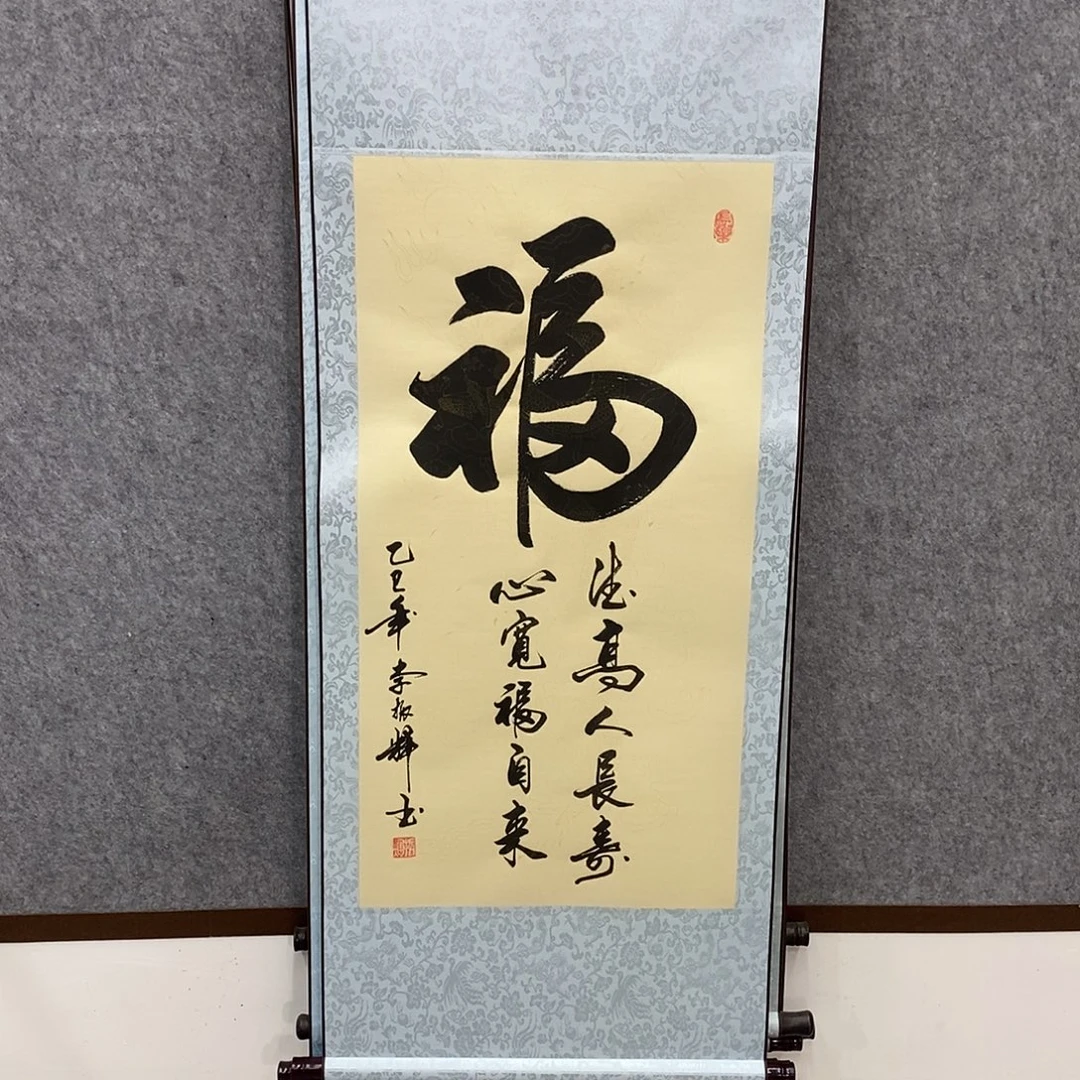 福
德高人長壽
心寬福自来
乙巳年李振輝书